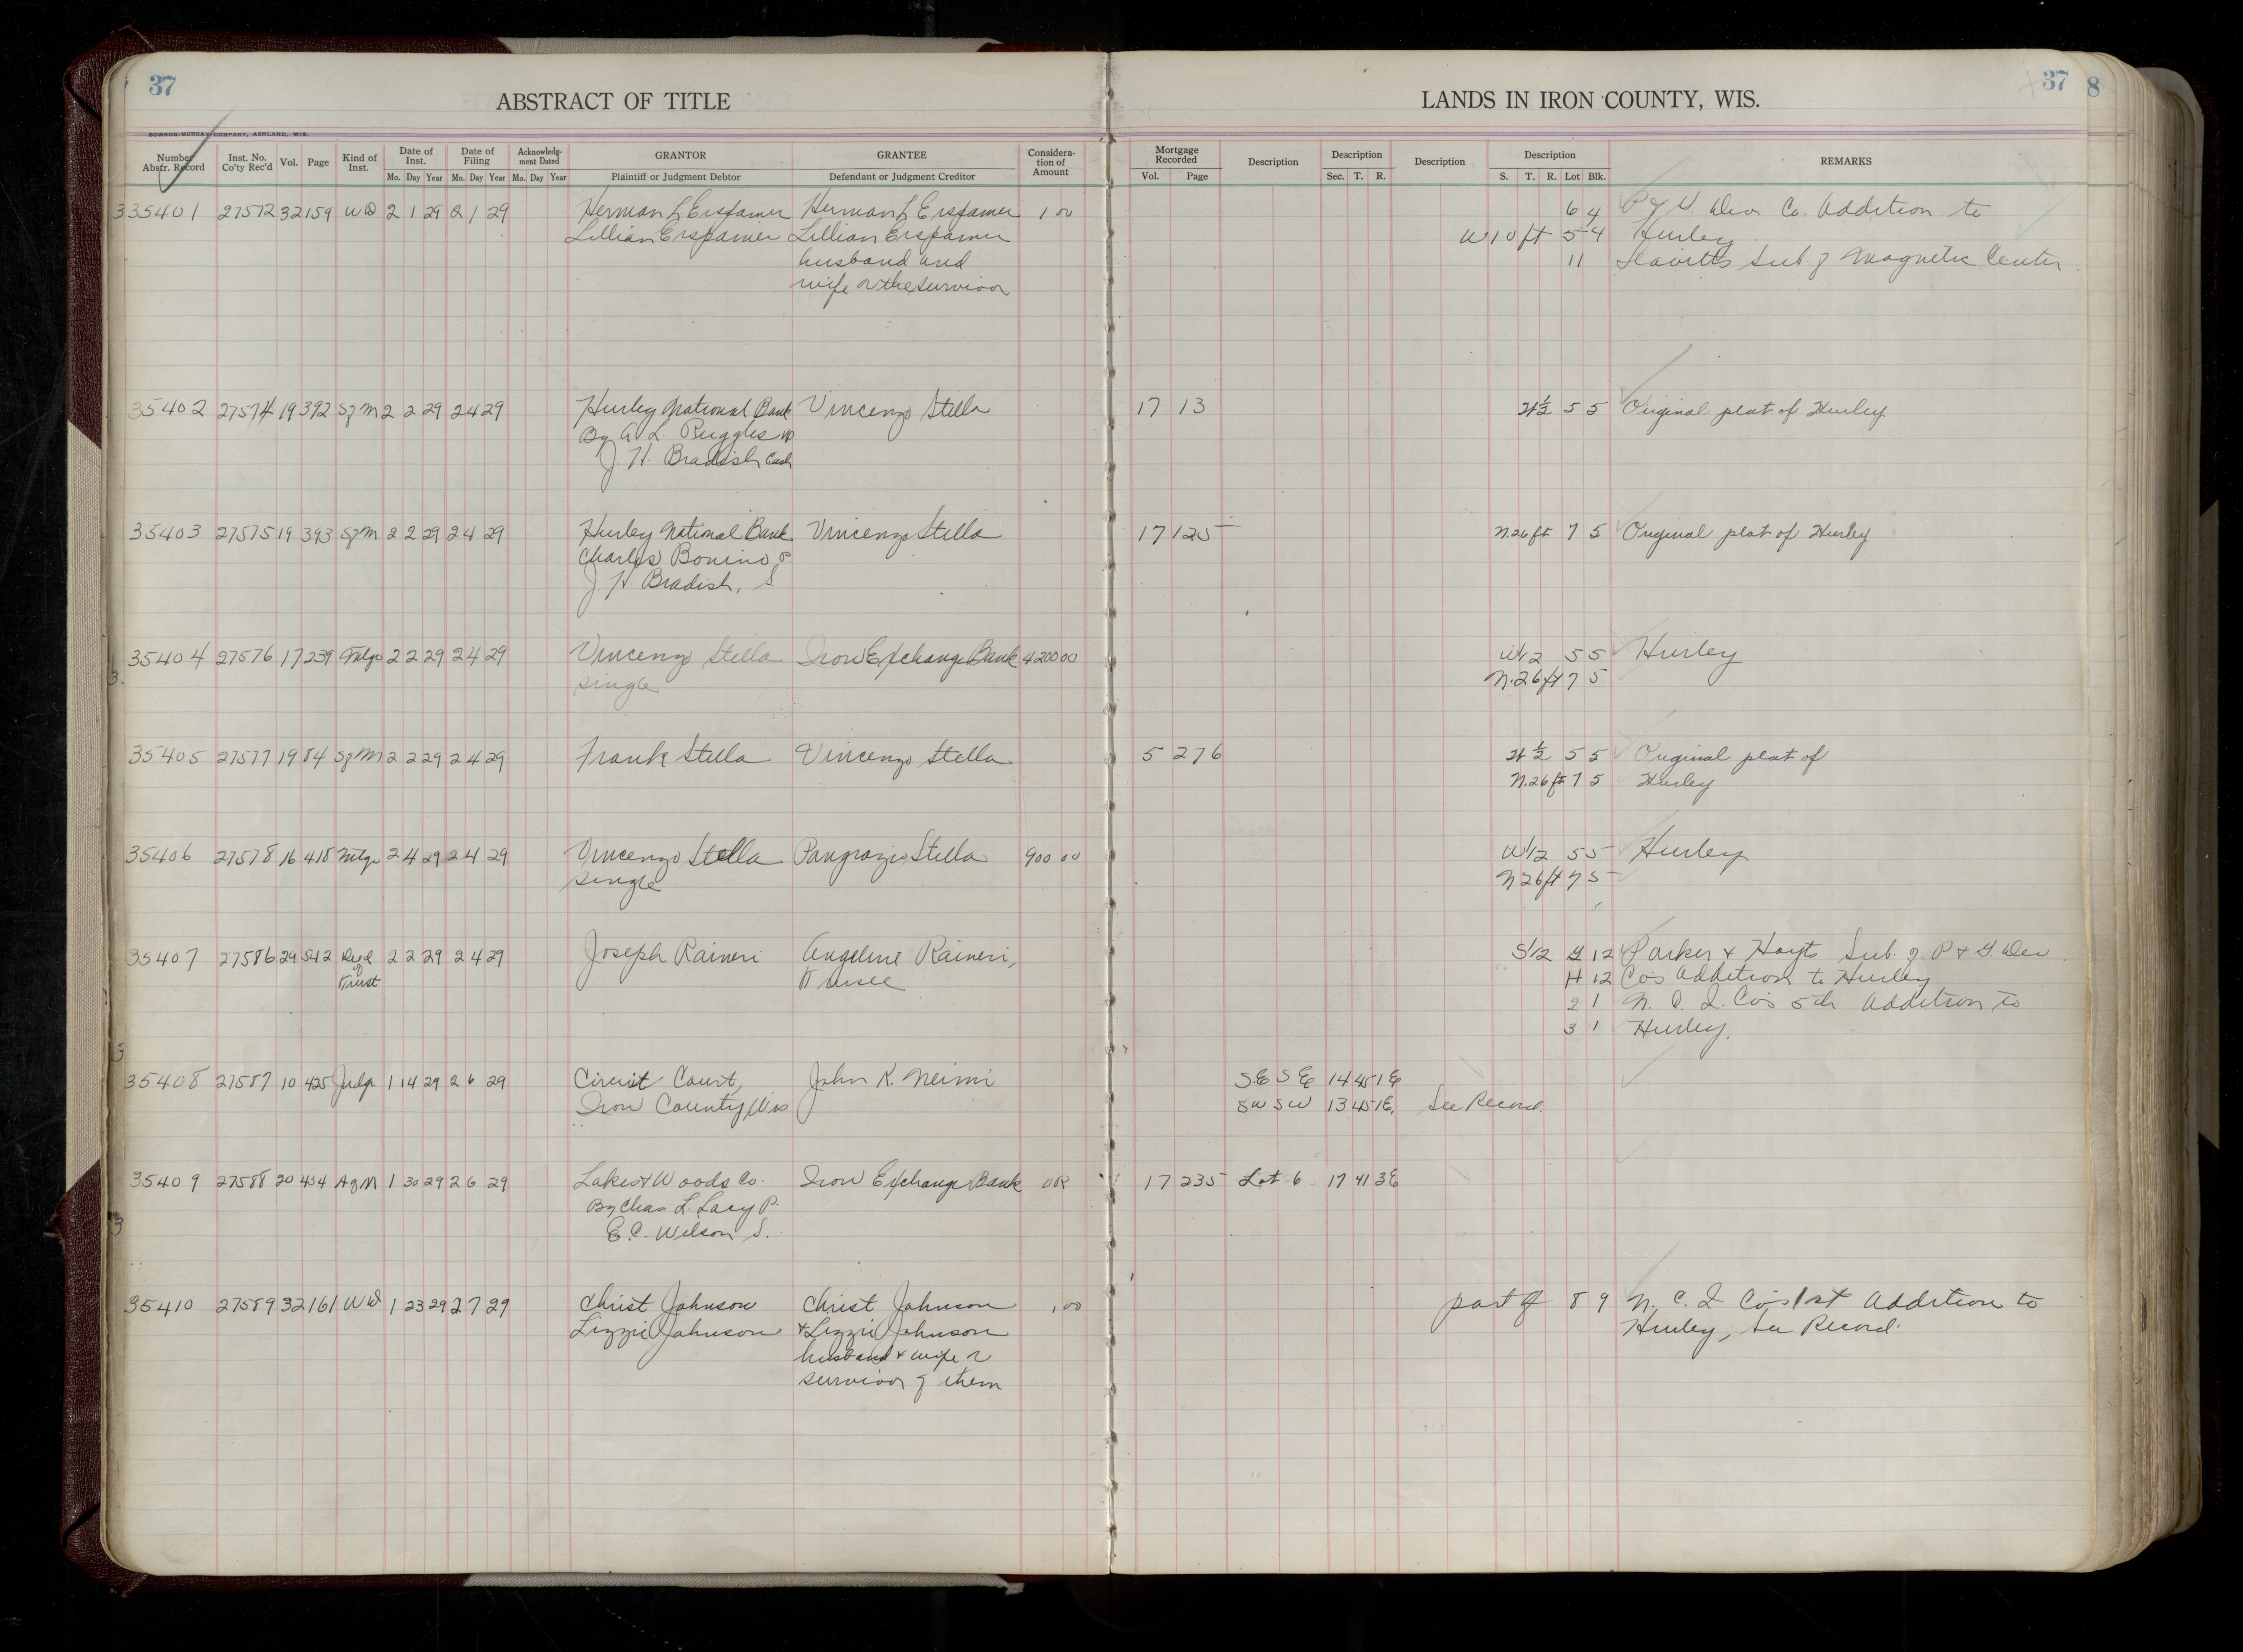 37
ABSTRACT OF TITLE
LANDS IN IRON COUNTY, WIS.
37 8
BOWRON-MURRAY COMPANY, ASHLAND, WIS.
Number Abstr. Record Inst. No. Co'ty Rec'd Vol. Page Kind of Inst. Date of Inst. Mo. Day Year Date of Filing Mo. Day Year Acknowledgment Dated Mo. Day Year GRANTOR Plaintiff or Judgment Debtor GRANTEE Defendant or Judgment Creditor Consideration of Amount Mortgage Recorded Vol. Page Description Description Sec. T. R. Description Description S. T. R. Lot Blk. REMARKS
35401 27572 32 159 WD 2 1 29 2 1 29 Herman L Erspamer Herman L Erspamer 1 00 6 4 Dev. Co. Addition to
Lillian Erspamer Lillian Erspamer W 10 ft 5 4 Hurley
husband and 11 Leavitts Sub. of Magnetic Center
wife or the survivor
35402 27574 19 392 Sg M 2 2 29 2 4 29 Hurley National Bank Vincenzo Stella 17 13 W 1/2 5 5 Original plat of Hurley
By A L. Ruggles VP
J. H. Bradish Cash
35403 27575 19 393 Sg M 2 2 29 2 4 29 Hurley National Bank Vincenzo Stella 17 125 N.26 ft 7 5 Original plat of Hurley
Charles Bonino P.
J. H. Bradish, S
35404 27576 17 239 Mtge 2 2 29 2 4 29 Vincenzo Stella Iron Exchange Bank 4200 00 W 1/2 5 5 Hurley
single N.26 ft 7 5
35405 27577 19 84 Sg M 2 2 29 2 4 29 Frank Stella Vincenzo Stella 5 276 W 1/2 5 5 Original plat of
N.26 ft 7 5 Hurley
35406 27578 16 418 Mtge 2 4 29 2 4 29 Vincenzo Stella Pangrazio Stella 900 00 W 1/2 5 5 Hurley
single N 26 ft 7 5
35407 27586 29 542 Deed of Trust 2 2 29 2 4 29 Joseph Raineri Angeline Raineri, S 1/2 G 12 Parker & Hoyts Sub. of P & G. Dev.
Trusee H 12 Co's Addition to Hurley
2 1 N. C. I. Co's 5th Addition to
3 1 Hurley.
35408 27587 10 425 Judg 1 14 29 2 6 29 Circuit Court, John K. Neimi S.E S E 14 45 1 E
Iron County, Wis SW SW 13 45 1E. See Record.
35409 27588 20 434 AgM 1 30 29 2 6 29 Lakes & Woods Co. Iron Exchange Bank VR 17 235 Lot 6 17 41 3E
By Chas L. Lacy P.
E. C. Wilson S.
35410 27589 32 161 WD 1 23 29 2 7 29 Christ Johnson Christ Johnson 1 00 part of 8 9 N. C. I Co's 1st Addition to
Lizzie Johnson & Lizzie Johnson Hurley, See Record.
husband & wife or
survivor of them